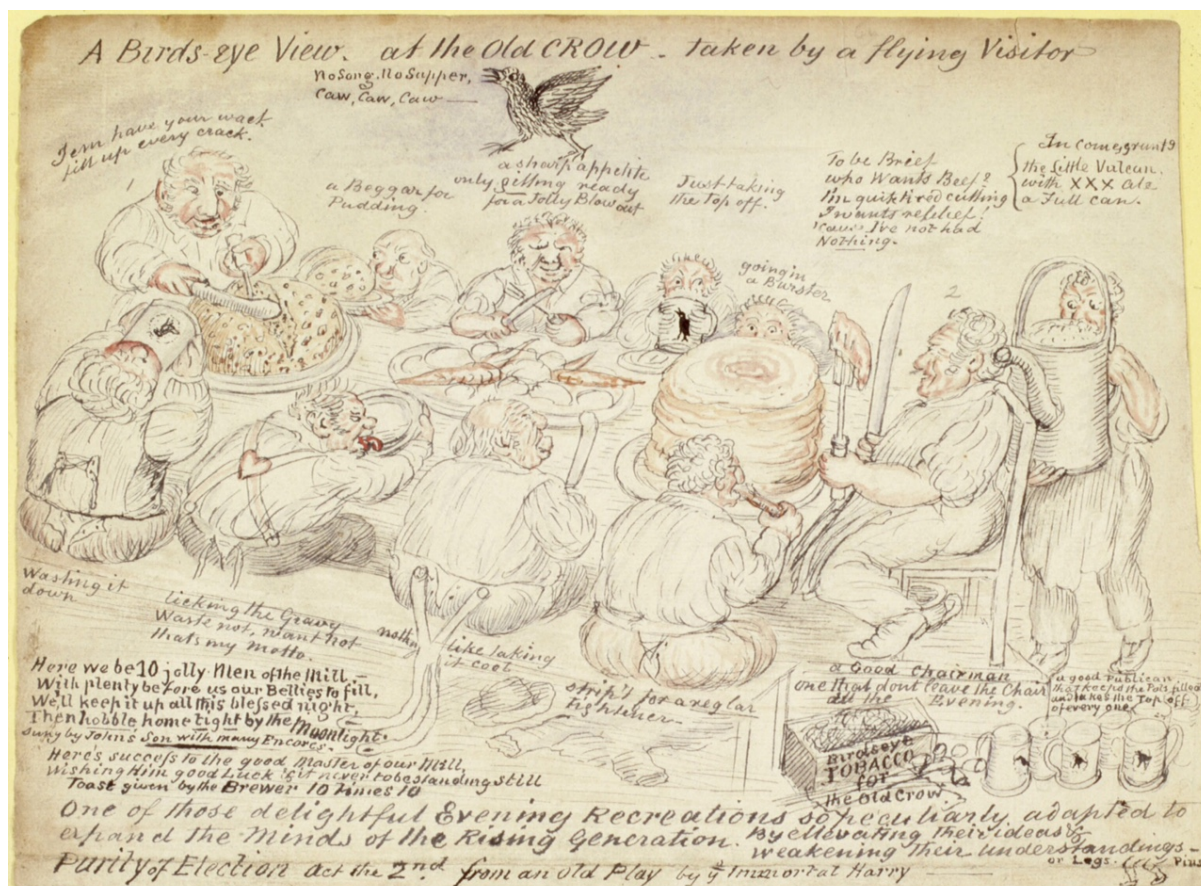 A Birds-eye View. at the Old CROW - taken by a flying Visitor
No Song. No Supper,
Caw, Caw, Caw
Jem have your wack
fill up every crack.
1
a Beggar for
Pudding.
a sharp appetite
only getting ready
for a Jolly Blow out
Just taking
the Top off.
To be Brief
who Wants Beef?
I'm quite tired cutting
I wants relief,
'cause I've not had
Nothing.
In comes grunt
the Little Vulcan.
with XXX ale
a Full can.
going in
a Burster
2
Washing it
down
licking the Gravy
Waste not, want not
thats my motto.
nothing
like taking
it cool
strip't for a reglar
tightner
a Good Chairman
one that dont leave the Chair
all the Evening.
a good Publican
that keeps the Pots filled
and takes the Top off
of every one
Here we be 10 jolly Men of the Mill.
With plenty before us our Bellies to fill,
We'll keep it up all this blessed night,
Then hobble home tight by the Moonlight.
sung by John's Son with many Encores.
Here's success to the good Master of our Mill,
Wishing Him good Luck & it never to be standing still
Toast given by the Brewer 10 Times 10
Birdseye
TOBACCO
for
the Old Crow
One of those delightful Evening Recreations so peculiarly adapted to
expand the Minds of the Rising Generation. By ellevating Their ideas &
weakening Their understandings -
or Legs. Pins
Purity of Election Act the 2nd from an Old Play by ye Immortal Harry